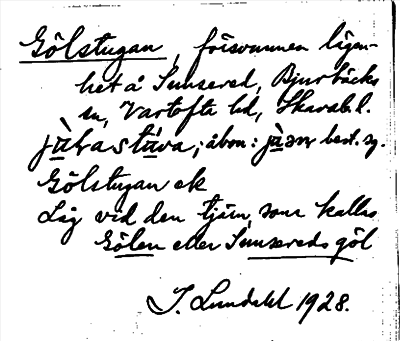 Gölstugan, försvunnen lägen-
het å Sunnered, Bjurbäcks
sn, Vartofta hd, Skarab. l.
Gölstugan ek
Låg vid den tjärn, som kallas
Gölen eller Sunnereds göl
J. Lundahl 1928.